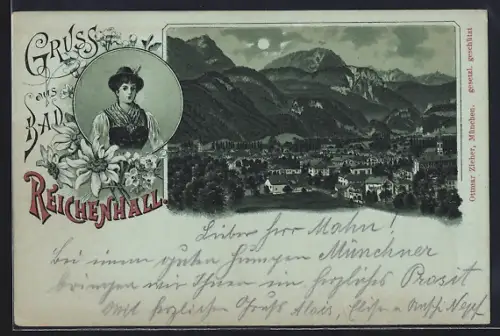 GRUSS
aus
BAD
REICHENHALL.
Ottmar Zieher, München. gesetzl. geschützt
Lieber Herr Mahn!
Bei einem guten Humpen Münchner
bringen wir Ihnen ein herzliches Prosit
Mit herzlichen Gruß Alois,